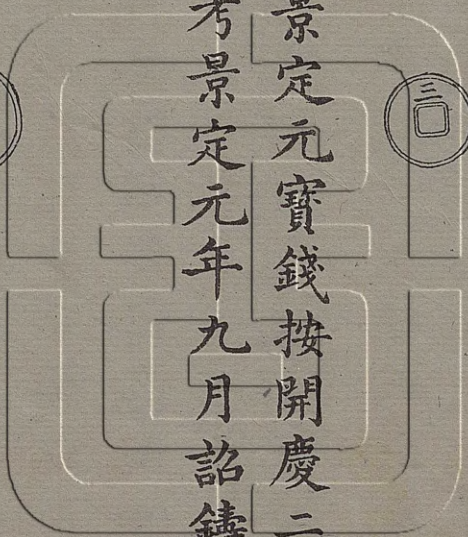 景定元寶錢按開慶二
考景定元年九月詔鑄
三